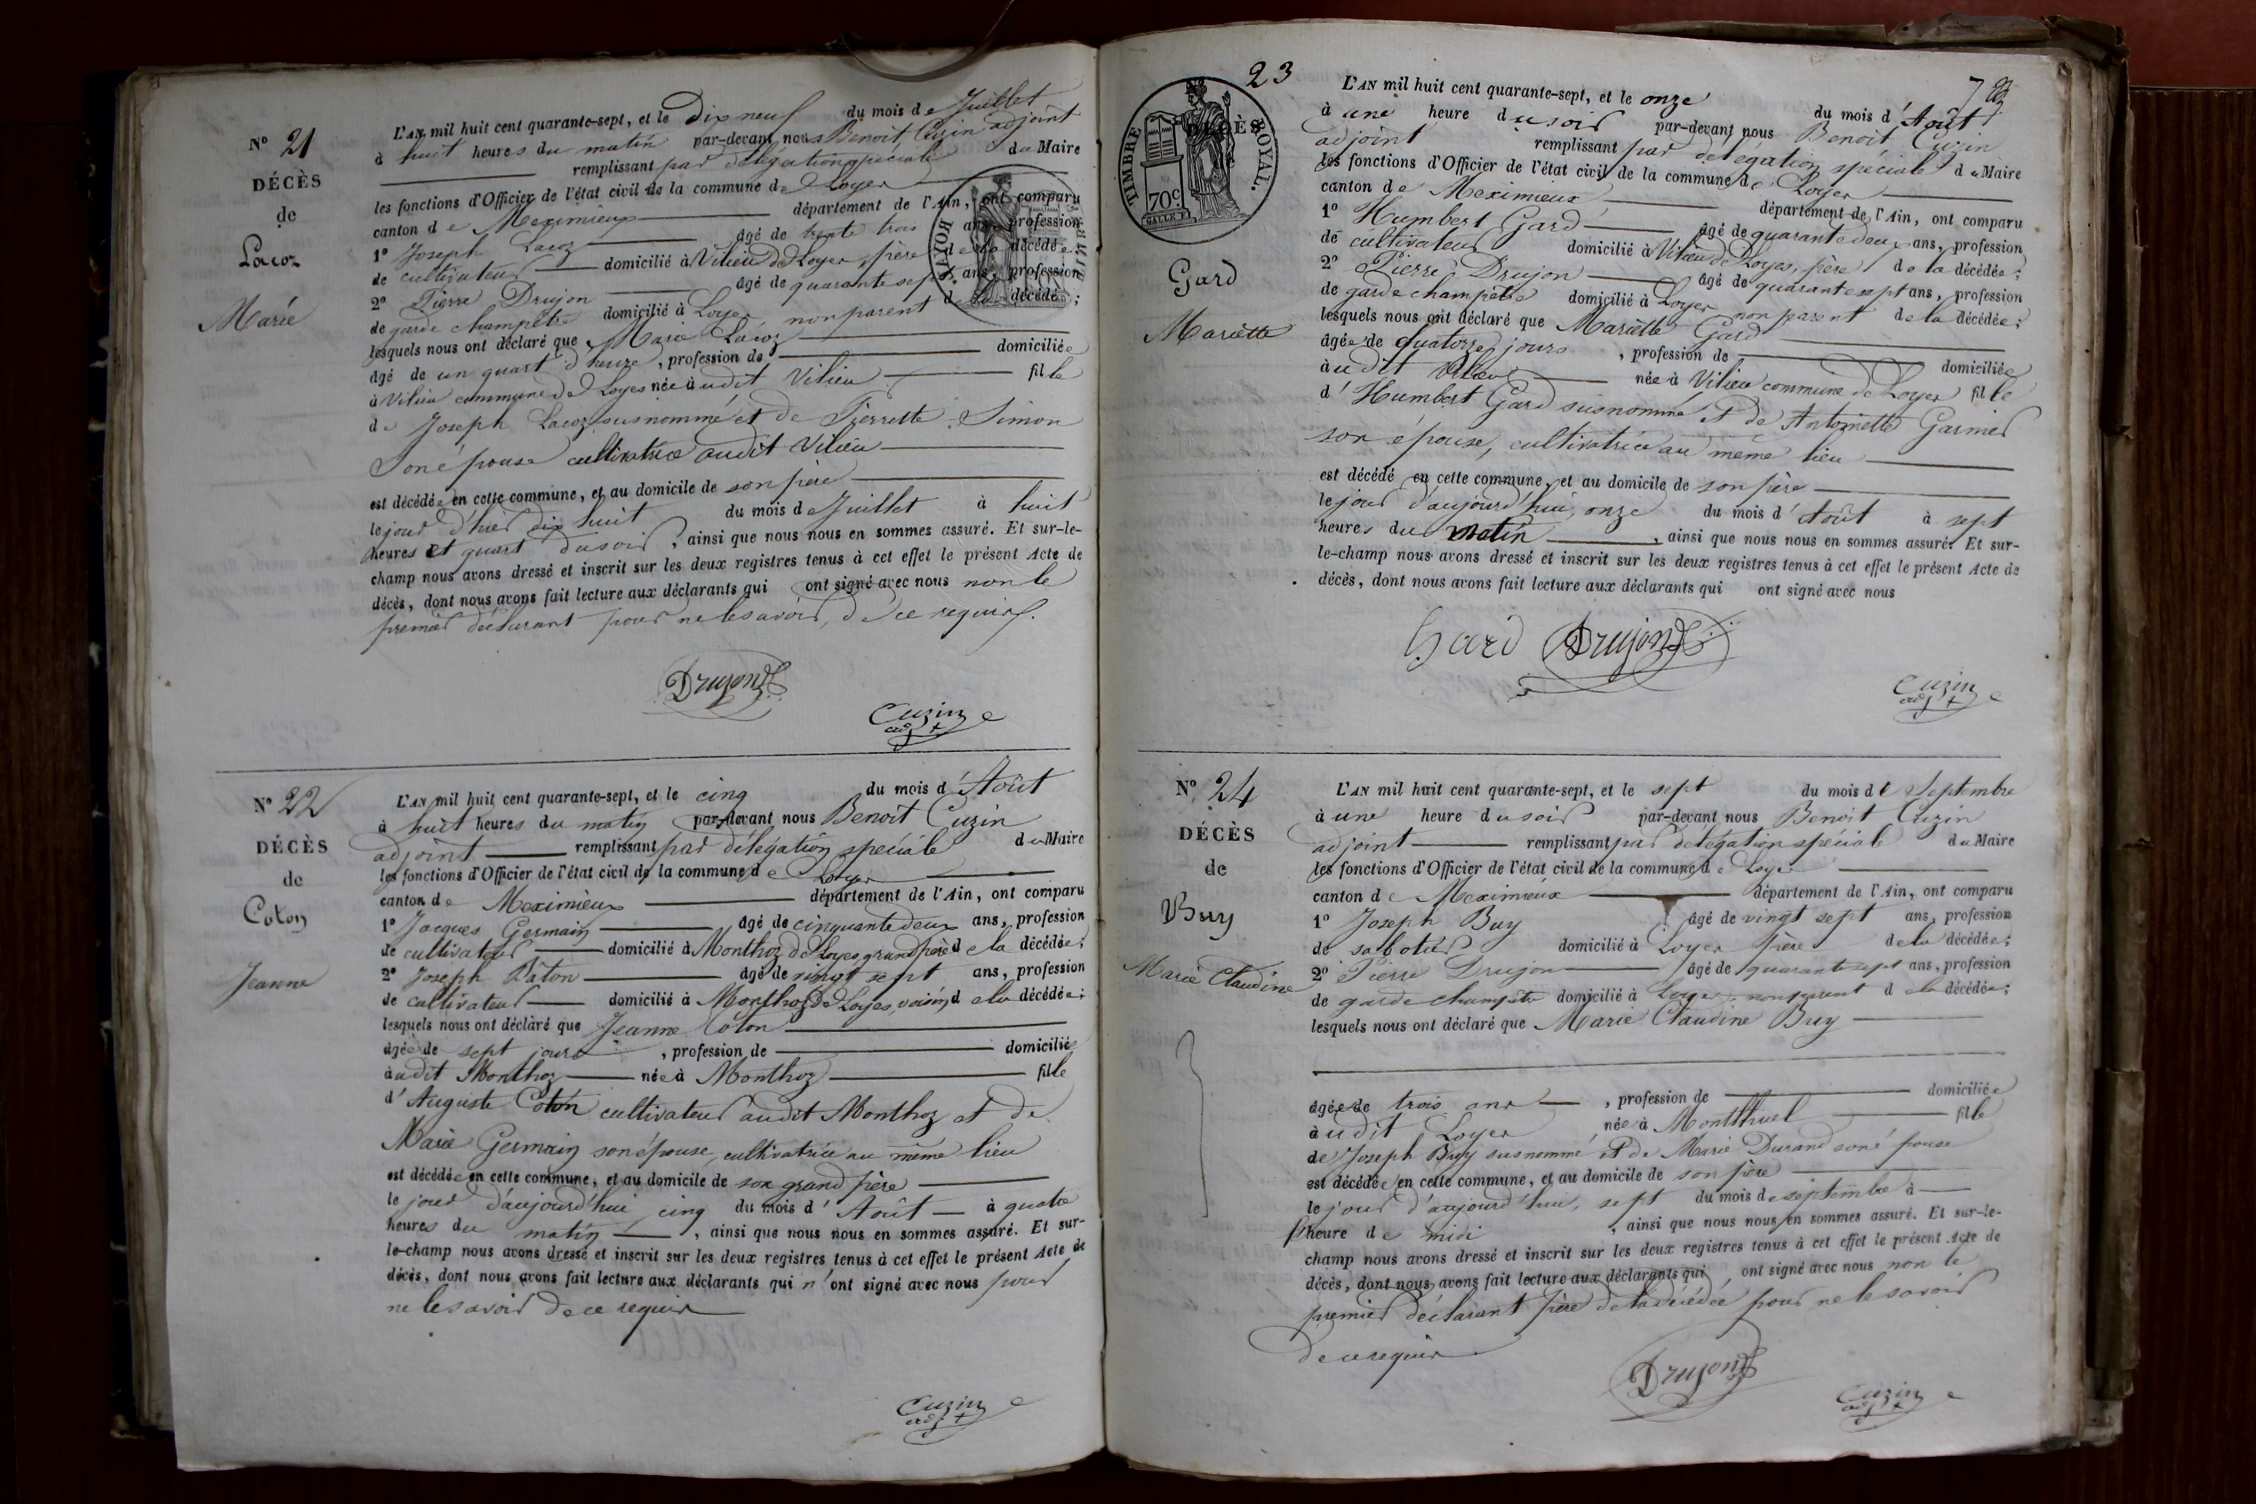 N° 21
DÉCÈS
de
Lacoz
Marie
L'AN mil huit cent quarante-sept, et le Dix neuf du mois de Juillet
à huit heures du matin par-devant nous Benoit Cuzin adjoint
remplissant par délégation spéciale du Maire
les fonctions d'Officier de l'état civil de la commune de Loyes
canton de Meximieux département de l'Ain, ont comparu
1° Joseph Lacoz âgé de trente trois ans, profession
de cultivateur domicilié à Vilieu de Loyes, père de la décédée;
2° Pierre Drujon âgé de quarante sept ans, profession
de garde champêtre domicilié à Loyes, non parent de la décédée;
lesquels nous ont déclaré que Marie Lacoz
âgé de un quart d'heure, profession de domiciliée
à Vilieu commune de Loyes née audit Vilieu fille
de Joseph Lacoz susnommé et de Pierrette Simon
son épouse cultivatrice audit Vilieu
est décédée en cette commune, et au domicile de son père
le jour d'hier dix huit du mois de Juillet à huit
heures et quart du soir, ainsi que nous nous en sommes assuré. Et sur-le-
champ nous avons dressé et inscrit sur les deux registres tenus à cet effet le présent Acte de
décès, dont nous avons fait lecture aux déclarants qui ont signé avec nous non le
premier déclarant pour ne le savoir, de ce requis.
Drujon
Cuzin
adjt
N° 22
DÉCÈS
de
Coton
Jeanne
L'AN mil huit cent quarante-sept, et le cinq du mois d'Août
à huit heures du matin par-devant nous Benoit Cuzin
adjoint remplissant par délégation spéciale du Maire
les fonctions d'Officier de l'état civil de la commune de Loyes
canton de Meximieux département de l'Ain, ont comparu
1° Jacques Germain âgé de cinquante deux ans, profession
de cultivateur domicilié à Monthoz de Loyes grand père de la décédée;
2° Joseph Bâton âgé de vingt sept ans, profession
de cultivateur domicilié à Monthoz de Loyes, voisin de la décédée;
lesquels nous ont déclaré que Jeanne Coton
âgée de sept jours, profession de domiciliée
audit Monthoz née à Monthoz fille
d'Auguste Coton cultivateur audit Monthoz et de
Marie Germain son épouse, cultivatrice au même lieu
est décédée en cette commune, et au domicile de son grand père
le jour d'aujourd'hui cinq du mois d'Août à quatre
heures du matin, ainsi que nous nous en sommes assuré. Et sur-
le-champ nous avons dressé et inscrit sur les deux registres tenus à cet effet le présent Acte de
décès, dont nous avons fait lecture aux déclarants qui n'ont signé avec nous pour
ne le savoir de ce requis
Cuzin
adjt
23
78
TIMBRE ROYAL.
70c.
DÉCÈS
Gard
Mariette
L'AN mil huit cent quarante-sept, et le onze du mois d'Août
à une heure du soir par-devant nous Benoit Cuzin
adjoint remplissant par délégation spéciale du Maire
les fonctions d'Officier de l'état civil de la commune de Loyes
canton de Meximieux département de l'Ain, ont comparu
1° Humbert Gard âgé de quarante deux ans, profession
de cultivateur domicilié à Vilieu de Loyes, père de la décédée;
2° Pierre Drujon âgé de quarante sept ans, profession
de garde champêtre domicilié à Loyes non parent de la décédée;
lesquels nous ont déclaré que Mariette Gard
âgée de quatorze jours, profession de domiciliée
audit Vilieu née à Vilieu commune de Loyes fille
d'Humbert Gard susnommé et de Antoinette Garnier
son épouse, cultivatrice au même lieu
est décédé en cette commune, et au domicile de son père
le jour d'aujourd'hui, onze du mois d'Août à sept
heures du matin, ainsi que nous nous en sommes assuré. Et sur-
le-champ nous avons dressé et inscrit sur les deux registres tenus à cet effet le présent Acte de
décès, dont nous avons fait lecture aux déclarants qui ont signé avec nous
Gard Drujon
Cuzin
adjt
N° 24
DÉCÈS
de
Buy
Marie Claudine
L'AN mil huit cent quarante-sept, et le sept du mois de Septembre
à une heure du soir par-devant nous Benoit Cuzin
adjoint remplissant par délégation spéciale du Maire
les fonctions d'Officier de l'état civil de la commune de Loyes
canton de Meximieux département de l'Ain, ont comparu
1° Joseph Buy âgé de vingt sept ans, profession
de sabotier domicilié à Loyes père de la décédée;
2° Pierre Drujon âgé de quarante sept ans, profession
de garde champêtre domicilié à Loyes, non parent de la décédée;
lesquels nous ont déclaré que Marie Claudine Buy
âgée de trois ans, profession de domiciliée
audit Loyes née à Montluel fille
de Joseph Buy susnommé et de Marie Durand son épouse
est décédée en cette commune, et au domicile de son père
le jour d'aujourd'hui, sept du mois de septembre à
heure de midi, ainsi que nous nous en sommes assuré. Et sur-le-
champ nous avons dressé et inscrit sur les deux registres tenus à cet effet le présent Acte de
décès, dont nous avons fait lecture aux déclarants qui ont signé avec nous non le
premier déclarant père de la décédée pour ne le savoir
de ce requis
Drujon
Cuzin
adjt